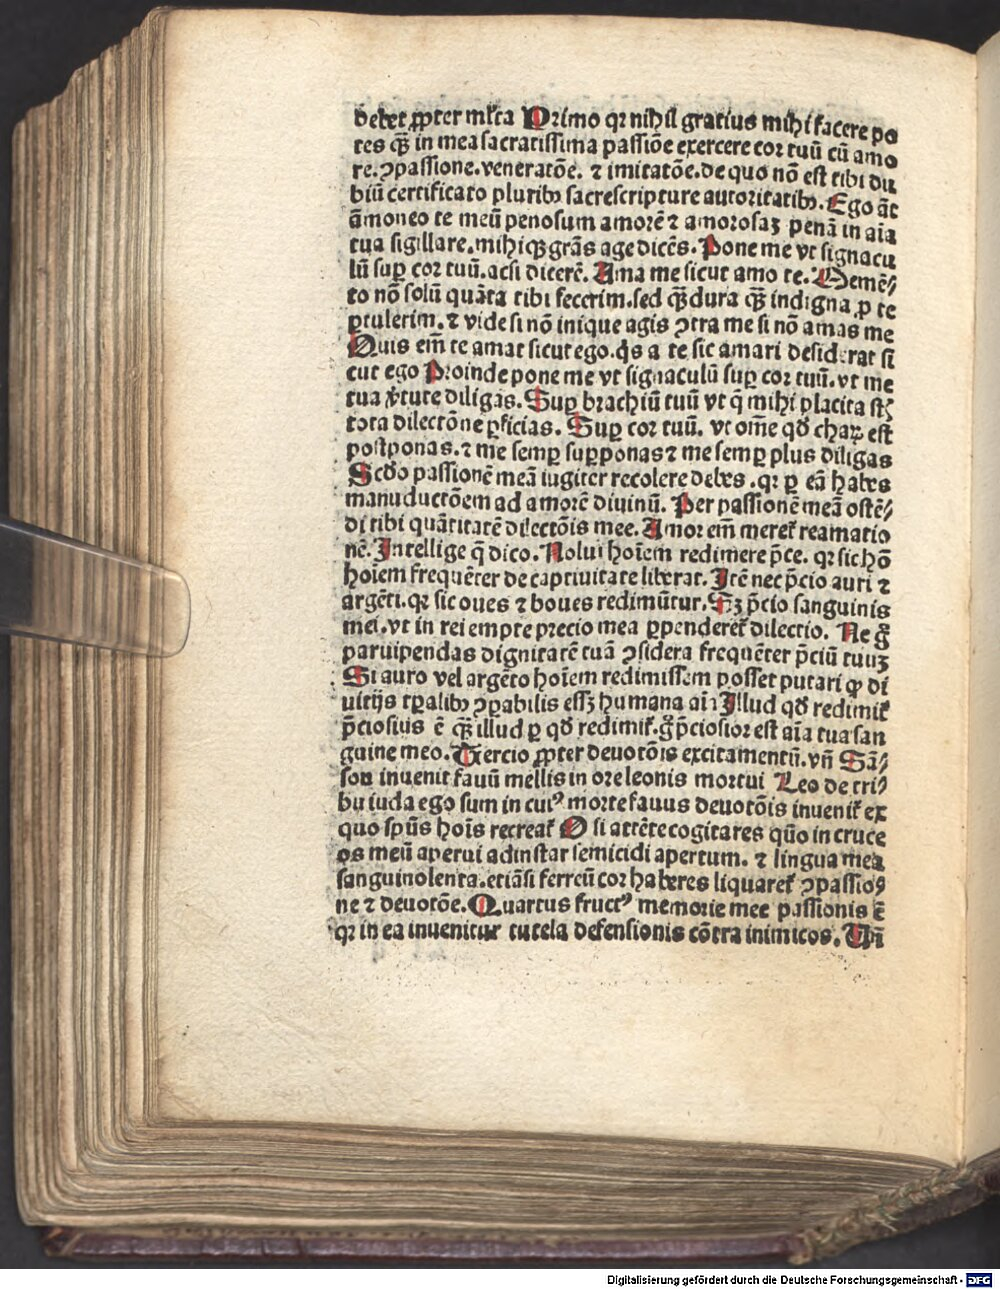 debet ꝓpter ml̃ta Primo qꝛ nihil gratius mihi facere po
tes qᷓꝫ in mea sacratissima passiõe exercere cor tuũ cũ amo
re.ↄpassione.veneratõe. ⁊ imitatõe.de quo nõ est tibi du
biũ certificato pluribꝰ sacrescripture autoritatibꝰ. Ego ãt
ãmoneo te meũ penosum amorẽ ⁊ amorosaꝫ penã in aĩa
tua sigillare.mihiqꝫ grãs age dicẽs. Pone me vt signacu
lũ suꝑ cor tuũ.acsi dicerẽ. Ama me sicut amo te. Memẽ⸗
to nõ solũ quãta tibi fecerim.sed qᷓꝫ dura qᷓꝫ indigna ꝓ te
ꝑtulerim. ⁊ vide si nõ inique agis ↄtra me si nõ amas me
Quis em̃ te amat sicut ego.qͥs a te sic amari desiderat si
cut ego Proinde pone me vt signaculũ suꝑ cor tuũ. vt me
tua v̓tute diligas. Suꝑ brachiũ tuũ vt q̃ mihi placita sũt
tota dilectõne ꝑficias. Suꝑ cor tuũ. vt om̃e qd̓ charꝫ est
postponas.⁊ me semꝑ suꝑponas ⁊ me semꝑ plus diligas
Scd̓o passionẽ meã iugiter recolere debes .qꝛ ꝑ eã habes
manuductõem ad amorẽ diuinũ. Per passionẽ meã ostẽ⸗
di tibi quãtitatẽ dilectõis mee. Amor em̃ meret̃ reamatio
nẽ. Intellige q̃ dico. Nolui hoĩem redimere p̃ce. qꝛ sic hõ
hoĩem frequẽter de captiuitate liberat. Itẽ nec p̃cio auri ⁊
argẽti.qꝛ sic oues ⁊ boues redimũtur. Sꝫ p̃cio sanguinis
mei.vt in rei empte precio mea ꝑpenderet̃ dilectio. Ne gͦ
paruipendas dignitatẽ tuã ↄsidera frequẽter p̃ciũ tuuꝫ
Si auro vel argẽto hoĩem redimissem posset putari ꝙ di
uitijs tꝑalibꝰ ↄꝑabilis essꝫ humana aĩa Illud qd̓ redimit̃
p̃ciosius ẽ qᷓꝫ illud ꝑ qd̓ redimit̃.gͦ p̃ciosior est aĩa tua san
guine meo. Tercio ꝓpter deuotõis excitamentũ. vñ Sã⸗
son inuenit fauũ mellis in ore leonis mortui Leo de tri⸗
bu iuda ego sum in cuiꝰ morte fauus deuotõis inuenit̃ ex
quo spũs hoĩs recreat̃ O si attẽte cogitares quõ in cruce
os meũ aperui adinstar semicidi apertum. ⁊ lingua mea
sanguinolenta.etiãsi ferreũ cor haberes liquaret̃ ↄpassio⸗
ne ⁊ deuotõe. Quartus fructꝰ memorie mee passionis ẽ
qꝛ in ea inuenitur tutela defensionis cõtra inimicos. Vñ
Digitalisierung gefördert durch die Deutsche Forschungsgemeinschaft - DFG